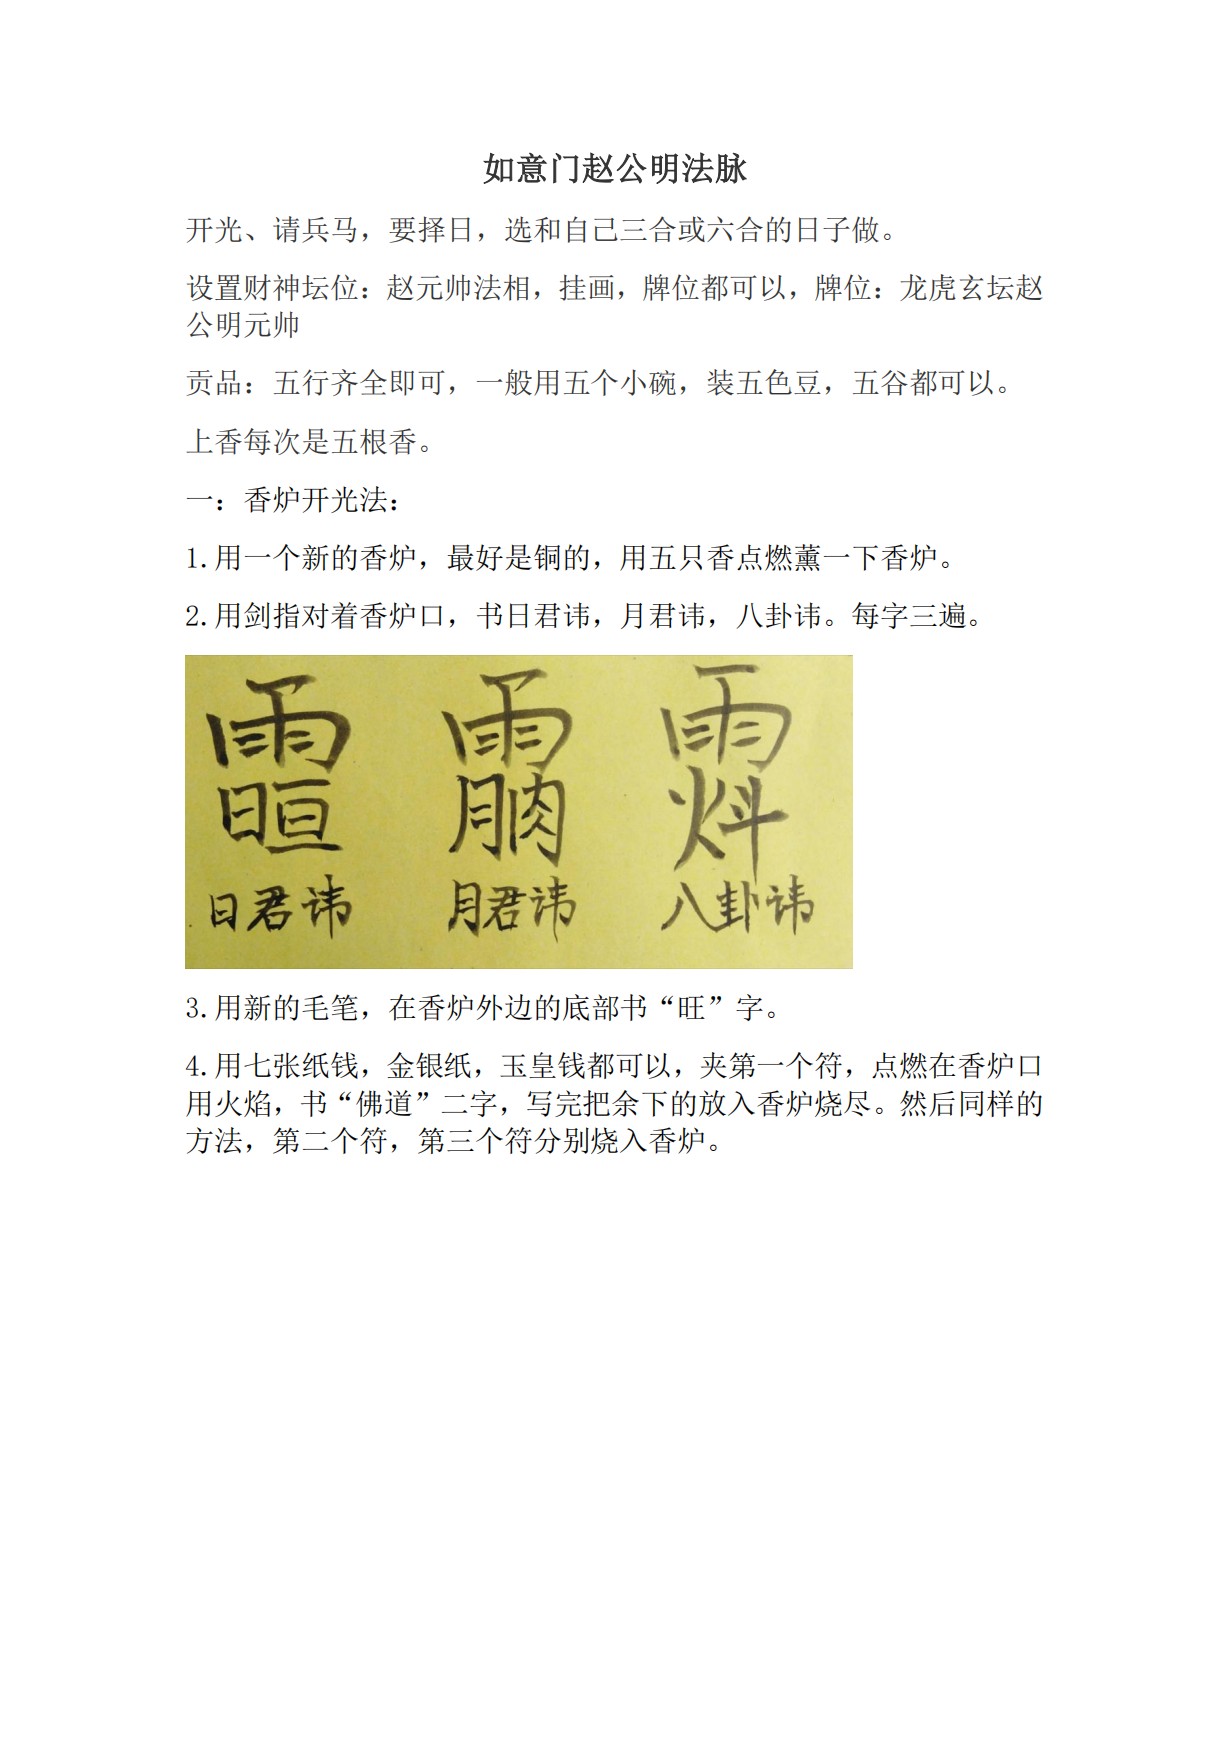 如意门赵公明法脉
开光、请兵马，要择日，选和自己三合或六合的日子做。
设置财神坛位：赵元帅法相，挂画，牌位都可以，牌位：龙虎玄坛赵
公明元帅
贡品：五行齐全即可，一般用五个小碗，装五色豆，五谷都可以。
上香每次是五根香。
一：香炉开光法：
1.用一个新的香炉，最好是铜的，用五只香点燃薰一下香炉。
2.用剑指对着香炉口，书日君讳，月君讳，八卦讳。每字三遍。
日君讳 月君讳 八卦讳
3.用新的毛笔，在香炉外边的底部书“旺”字。
4.用七张纸钱，金银纸，玉皇钱都可以，夹第一个符，点燃在香炉口
用火焰，书“佛道”二字，写完把余下的放入香炉烧尽。然后同样的
方法，第二个符，第三个符分别烧入香炉。